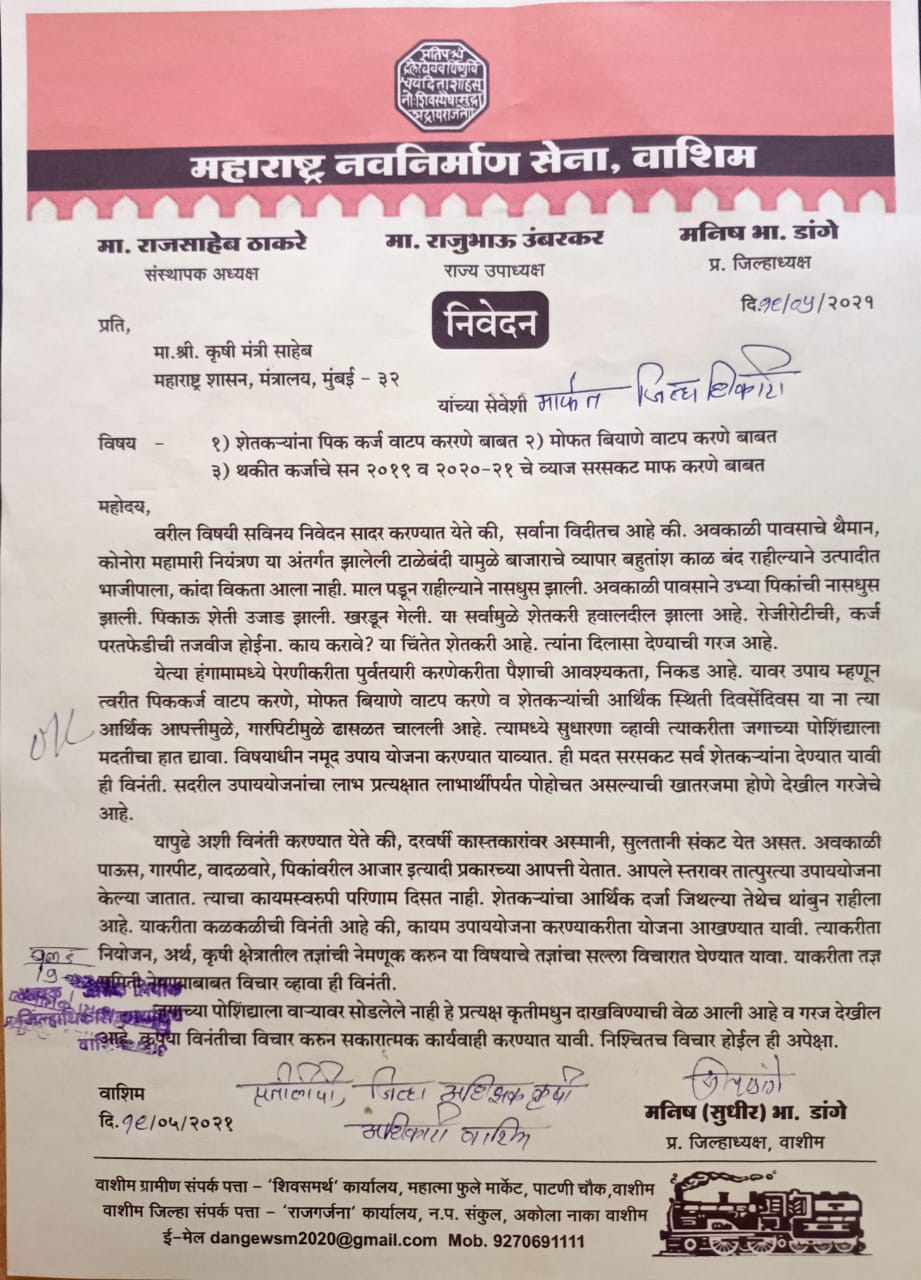 महाराष्ट्र नवनिर्माण सेना, वाशिम
मा. राजसाहेब ठाकरे
संस्थापक अध्यक्ष
मा. राजुभाऊ उंबरकर
राज्य उपाध्यक्ष
मनिष भा. डांगे
प्र. जिल्हाध्यक्ष
निवेदन
दि.१९/०५/२०२१
प्रति,
मा.श्री. कृषी मंत्री साहेब
महाराष्ट्र शासन, मंत्रालय, मुंबई - ३२
यांच्या सेवेशी मार्फत जिल्हाधिकारी
विषय - १) शेतकऱ्यांना पिक कर्ज वाटप कररणे बाबत २) मोफत बियाणे वाटप करणे बाबत
३) थकीत कर्जाचे सन २०१९ व २०२०-२१ चे व्याज सरसकट माफ करणे बाबत
महोदय,
वरील विषयी सविनय निवेदन सादर करण्यात येते की, सर्वाना विदीतच आहे की. अवकाळी पावसाचे थैमान,
कोनोरा महामारी नियंत्रण या अंतर्गत झालेली टाळेबंदी यामुळे बाजाराचे व्यापार बहुतांश काळ बंद राहील्याने उत्पादीत
भाजीपाला, कांदा विकता आला नाही. माल पडून राहील्याने नासधुस झाली. अवकाळी पावसाने उभ्या पिकांची नासधुस
झाली. पिकाऊ शेती उजाड झाली. खरडून गेली. या सर्वामुळे शेतकरी हवालदील झाला आहे. रोजीरोटीची, कर्ज
परतफेडीची तजवीज होईना. काय करावे? या चिंतेत शेतकरी आहे. त्यांना दिलासा देण्याची गरज आहे.
येत्या हंगामामध्ये पेरणीकरीता पुर्वतयारी करणेकरीता पैशाची आवश्यकता, निकड आहे. यावर उपाय म्हणून
त्वरीत पिककर्ज वाटप करणे, मोफत बियाणे वाटप करणे व शेतकऱ्यांची आर्थिक स्थिती दिवसेंदिवस या ना त्या
आर्थिक आपत्तीमुळे, गारपिटीमुळे ढासळत चालली आहे. त्यामध्ये सुधारणा व्हावी त्याकरीता जगाच्या पोशिंद्याला
मदतीचा हात द्यावा. विषयाधीन नमूद उपाय योजना करण्यात याव्यात. ही मदत सरसकट सर्व शेतकऱ्यांना देण्यात यावी
ही विनंती. सदरील उपाययोजनांचा लाभ प्रत्यक्षात लाभार्थीपर्यत पोहोचत असल्याची खातरजमा होणे देखील गरजेचे
आहे.
यापुढे अशी विनंती करण्यात येते की, दरवर्षी कास्तकारांवर अस्मानी, सुलतानी संकट येत असत. अवकाळी
पाऊस, गारपीट, वादळवारे, पिकांवरील आजार इत्यादी प्रकारच्या आपत्ती येतात. आपले स्तरावर तात्पुरत्या उपाययोजना
केल्या जातात. त्याचा कायमस्वरुपी परिणाम दिसत नाही. शेतकऱ्यांचा आर्थिक दर्जा जिथल्या तेथेच थांबुन राहीला
आहे. याकरीता कळकळीची विनंती आहे की, कायम उपाययोजना करण्याकरीता योजना आखण्यात यावी. त्याकरीता
नियोजन, अर्थ, कृषी क्षेत्रातील तज्ञांची नेमणूक करुन या विषयाचे तज्ञांचा सल्ला विचारात घेण्यात यावा. याकरीता तज्ञ
समिती नेमण्याबाबत विचार व्हावा ही विनंती.
जगाच्या पोशिंद्याला वाऱ्यावर सोडलेले नाही हे प्रत्यक्ष कृतीमधुन दाखविण्याची वेळ आली आहे व गरज देखील
आहे. कृपया विनंतीचा विचार करुन सकारात्मक कार्यवाही करण्यात यावी. निश्चितच विचार होईल ही अपेक्षा.
वाशिम
दि.१९/०५/२०२१
प्रतीलीपी, जिल्हा अधिक्षक कृषी
अधिकारी वाशिम
मनिष (सुधीर) भा. डांगे
प्र. जिल्हाध्यक्ष, वाशिम
वाशीम ग्रामीण संपर्क पत्ता - 'शिवसमर्थ' कार्यालय, महात्मा फुले मार्केट, पाटणी चौक,वाशीम
वाशीम जिल्हा संपर्क पत्ता - 'राजगर्जना' कार्यालय, न.प. संकुल, अकोला नाका वाशीम
ई-मेल dangewsm2020@gmail.com Mob. 9270691111